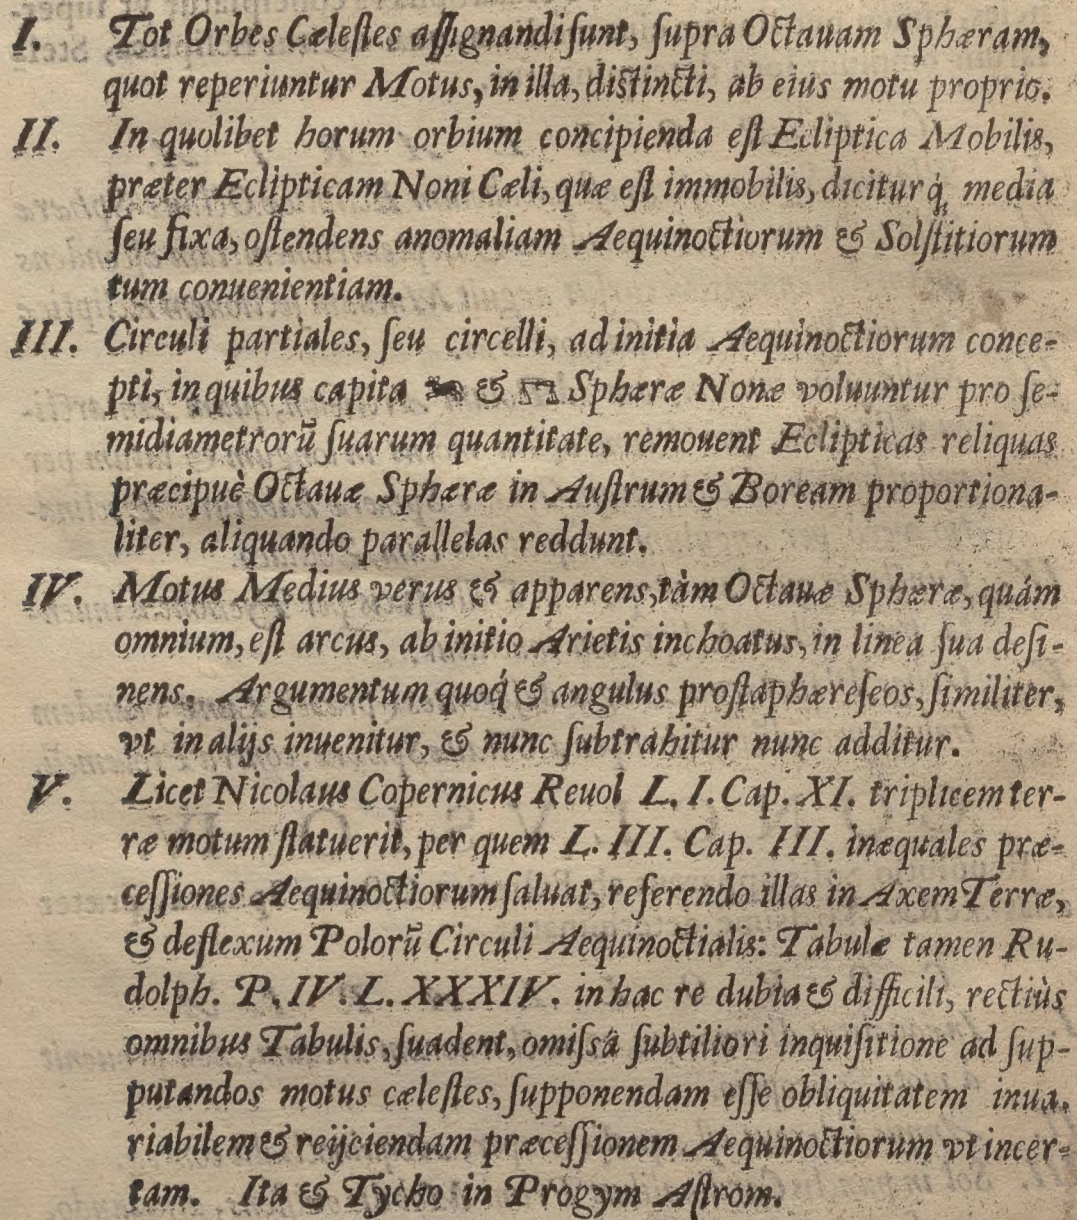 I. Tot Orbes Cæleſtes aſſignandi ſunt, ſupra Octauam Sphæram,
quot reperiuntur Motus, in illa, diſtincti, ab eius motu proprio.
II. In quolibet horum orbium concipienda eſt Ecliptica Mobilis,
præter Eclipticam Noni Cæli, quæ eſt immobilis, diciturq́; media
ſeu fixa, oſtendens anomaliam Aequinoctiorum & Solſtitiorum
tum conuenientiam.
III. Circuli partiales, ſeu circelli, ad initia Aequinoctiorum conce-
pti, in quibus capita ♈ & ♎ Sphæræ Nonæ voluuntur pro ſe-
midiametrorũ ſuarum quantitate, remouent Eclipticas reliquas
præcipuè Octauæ Sphæræ in Auſtrum & Boream proportiona-
liter, aliquando parallelas reddunt.
IV. Motus Medius verus & apparens, tàm Octauæ Sphæræ, quám
omnium, eſt arcus, ab initio Arietis inchoatus, in linea ſua deſi-
nens. Argumentum quoq́ & angulus proſtaphæreſeos, ſimiliter,
vt in alijs inuenitur, & nunc ſubtrahitur nunc additur.
V. Licet Nicolaus Copernicus Reuol L. I. Cap. XI. triplicem ter-
ræ motum ſtatuerit, per quem L. III. Cap. III. inæquales præ-
ceſſiones Aequinoctiorum ſaluat, referendo illas in Axem Terræ,
& deflexum Polorũ Circuli Aequinoctialis: Tabulæ tamen Ru-
dolph. P. IV. L. XXXIV. in hac re dubia & difficili, rectiùs
omnibus Tabulis, ſuadent, omiſsâ ſubtiliori inquiſitione ad ſup-
putandos motus cæleſtes, ſupponendam eſſe obliquitatem inua-
riabilem & reijciendam præceſſionem Aequinoctiorum vt incer-
tam. Ita & Tycho in Progym Aſtrom.